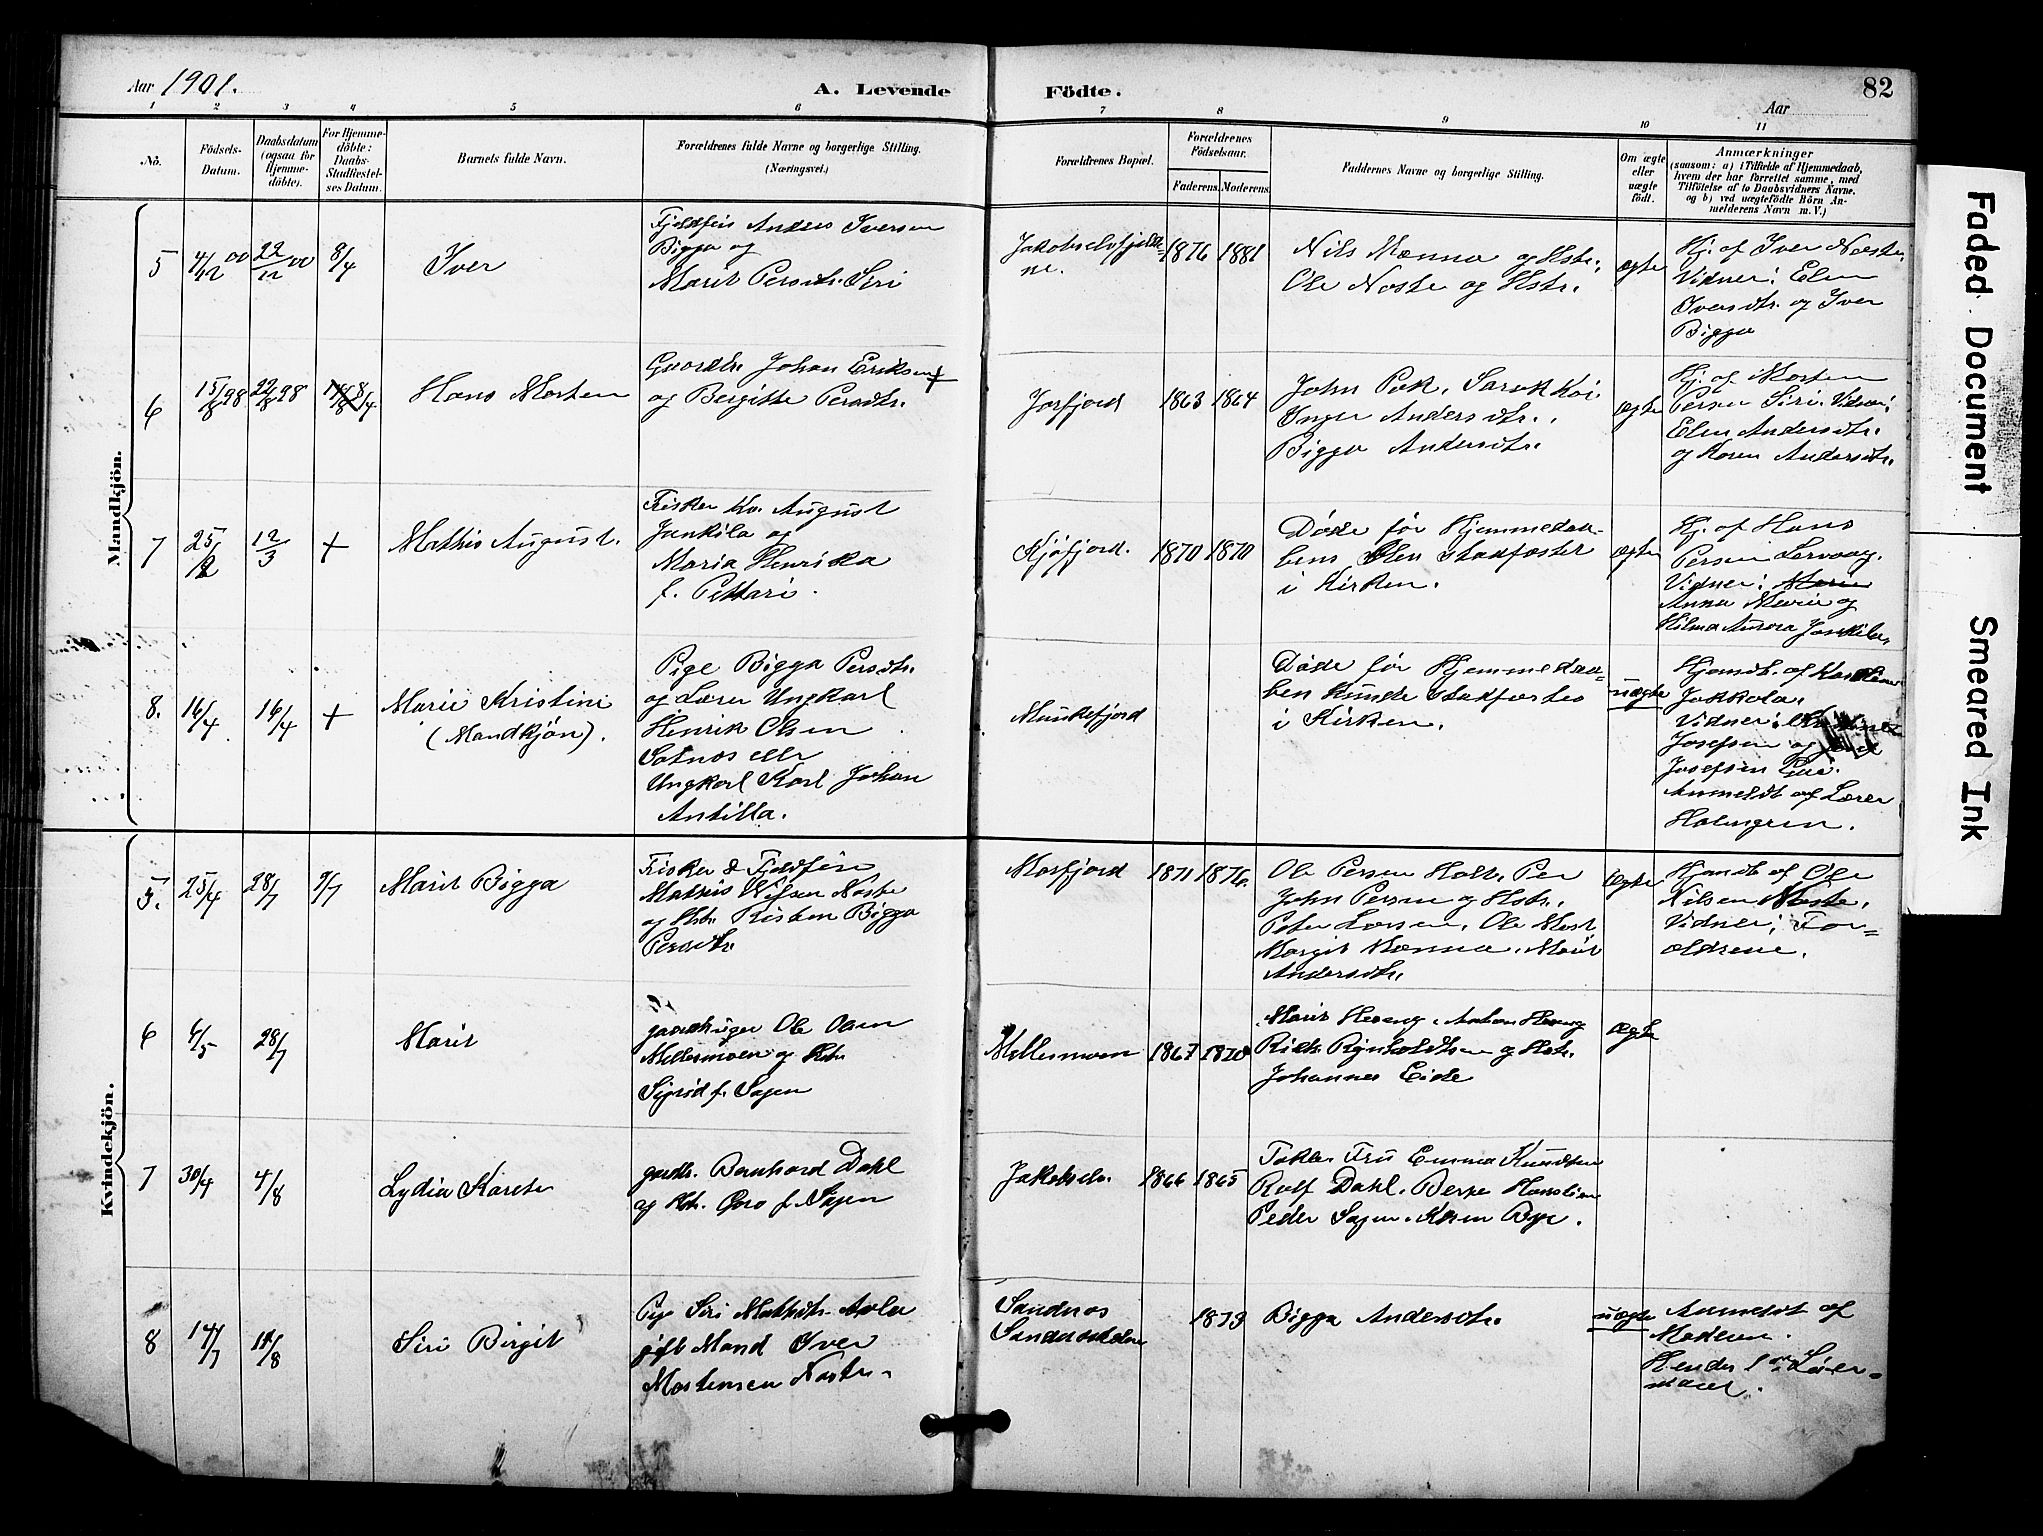 Aar 1901.
A. Levende
Födte.
Aar
82
1 2 3 4 5 6 7 8 9 10 11
No.
Födsels-Datum.
Daabsdatum (ogsaa for Hjemme-döbte).
For Hjemme-döbte: Daabs-Stadfæstel-ses Datum.
Barnets fulde Navn.
Forældrenes fulde Navne og borgerlige Stilling. (Næringsvei.)
Forældrenes Bopæl.
Forældrenes Födselsaar.
Faderens. Moderens.
Faddernes Navne og borgerlige Stilling.
Om ægte eller uægte födt.
Anmærkninger
(saasom: a) i Tilfælde af Hjemmedaab,
hvem der har forrettet samme, med
Tilföielse af to Daabsvidners Navne,
og b) ved uægtefödte Börn An-
melderens Navn m. V.)
Mandkjön.
5 4/12 00 22/12 00 8/4
Iver
Fjeldfin Anders Iversen
Bigga og
Marit Persdtr. Siri
1876 1881
Nils Mænna og Hstr.
Ole Noste og Hstr.
ægte
Hj. af Iver Noste.
Vidner: Elen
Iversdtr. og Iver
Bigga
6 15/8 98 22/8 98 8/4
Hans Morten
Gaardbr. Johan Eriksen +
og Bergitte Persdtr.
Jarfjord
1863 1864
John Pak, Sarak Koi
Inger Andersdtr.,
Bigga Andersdtr.
ægte
Hj. af Morten
Persen Siri. Vidner:
Elen Andersdtr.
og Karen Andersdtr.
7 25/2 12/3 +
Mathis August.
Fisker Kv. August
Jankila og
Maria Henrika
f. Pittari.
Kjøfjord.
1870 1870
Døde før Hjemmedaa-
ben blev stadfæstet
i Kirken.
ægte
Hj. af Hans
Persen Lervaag.
Vidner: Marie
Anna Marie og
Hilma Aurora Jankila.
8. 16/4 16/4 +
Marie Kristine
(Mandkjøn).
Pige Bigga Persdtr.
og Lærer Ungkarl
Henrik Olsen
Satnes eller
Ungkarl Karl Johan
Antilla.
Munkefjord
Døde før Hjemmedaa-
ben kunde stadfæstes
i Kirken.
uægte
Hjemdt. af
Jakkola.
Vidner:
Josefsen og
Josefsen
Anmeldt af Lærer
Holmgren.
Kvindekjön.
5. 25/4 28/7 9/7
Marit Bigga
Fisker & Fjeldfin
Mathis Nilsen Noste
og Hstr. Kirsten Bigga
Persdtr.
1871 1876
Ole Persen Holt, Per
John Persen og Hstr.
Peter Larsen, Ole Most
Margit Mænna, Marit
Andersdtr.
ægte
Hjemdt. af Ole
Nilsen Noste.
Vidner: For=
ældrene.
6 4/5 28/7
Marit
gaardbruger Ole Olsen
Mellesmoen og Hstr.
Sigrid f. Sagen
Mellesmoen
1867 1870
Marit Heseng, Anton Heseng
og Hstr.
Johannes Eide
ægte
7 30/4 4/8
Lydia Karete
gardbr. Bernhard Dahl
og Hstr. Guro f. Sagen
Jakobselv.
1866 1865
Fru Emma Knudtsen
Rolf Dahl.
Peder Sagen. Karen Bye.
8 14/7 11/8
Siri Birgit
Pige Siri Mathisdtr.
gift Mand Iver
Mortensen Noste.
Sandnes
1879
Bigga Andersdtr.
uægte
Anmeldt af
Moderen.
Hendes 1ste Leier-
maal.
Faded Document
Smeared Ink